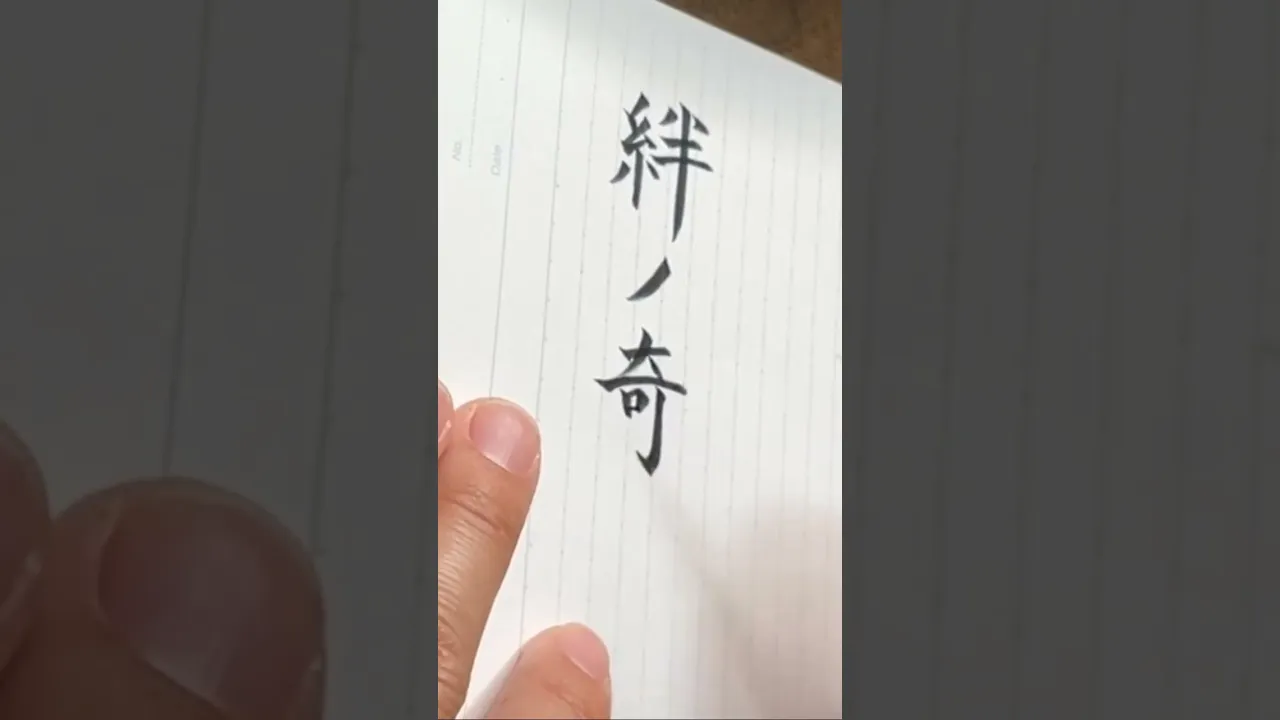 絆ノ奇
No.
Date